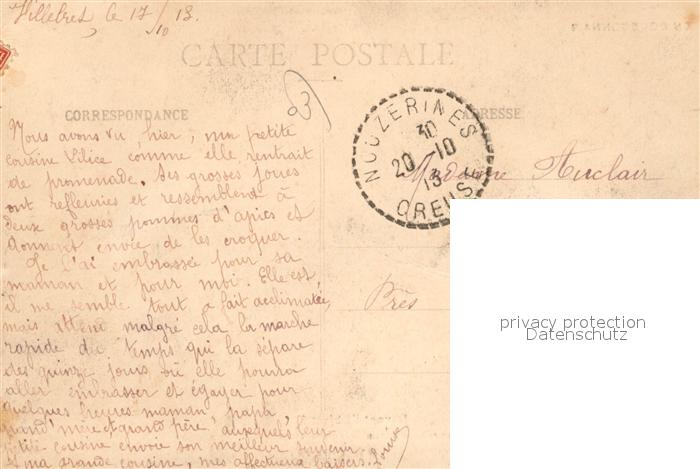 Villebret, le 17/10 13.
CARTE POSTALE
CORRESPONDANCE
ADRESSE
NOUZERINES
30
20 -10
13
CREUSE
Madame Auclair
Près
privacy protection
Datenschutz
Nous avons vu, hier, ma petite
cousine comme elle rentrait
de promenade. Ses grosses joues
ont refleuries et ressemblent à
deux grosses pommes d'apies et
donnent envie de les croquer.
Je l'ai embrassée pour sa
maman et pour moi. Elle est,
il me semble tout à fait acclimatée,
mais attend malgré cela la marche
rapide du temps qui la sépare
des quinze jours où elle pourra
aller embrasser et égayer pour
quelques heures maman, papa,
grand'mère et grand père, auxquels leur
petite cousine envoie son meilleur souvenir
et ma grande cousine, mes affectueux baisers.